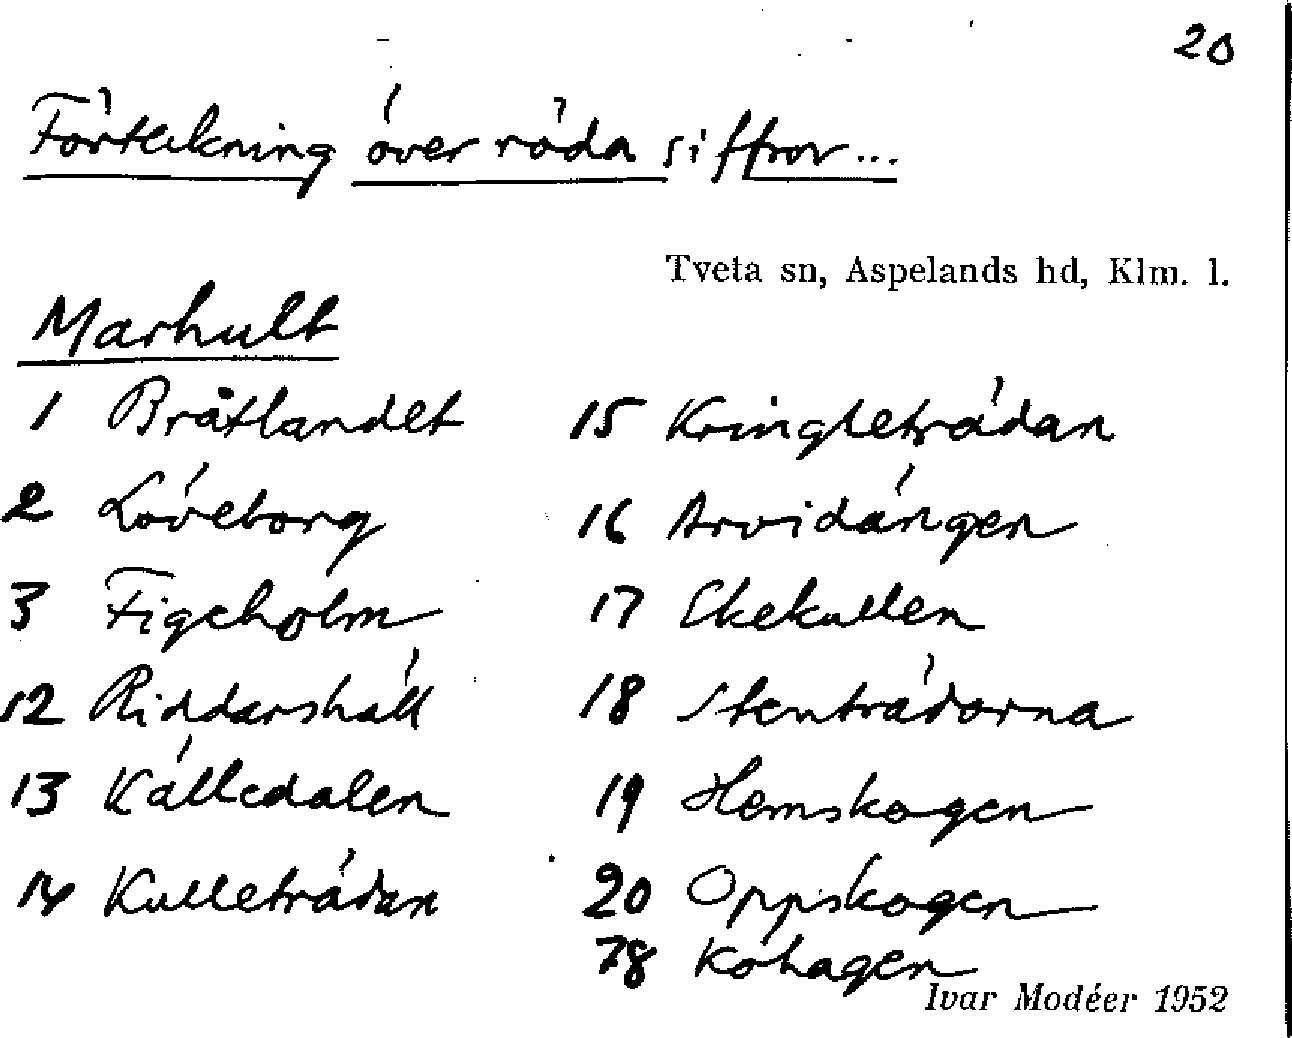 20
Förteckning över röda siffror...
Tveta sn, Aspelands hd, Klm. l.
Marhult
1 Bråtlandet
2 Löveborg
3 Figeholm
12 Riddarshäll
13 Källedalen
14 Kulleträdan
15 Kringleträdan
16 Arvidängen
17 Ekekullen
18 Stenträdorna
19 Hemskogen
20 Oppskogen
78 Kohagen
Ivar Modéer 1952